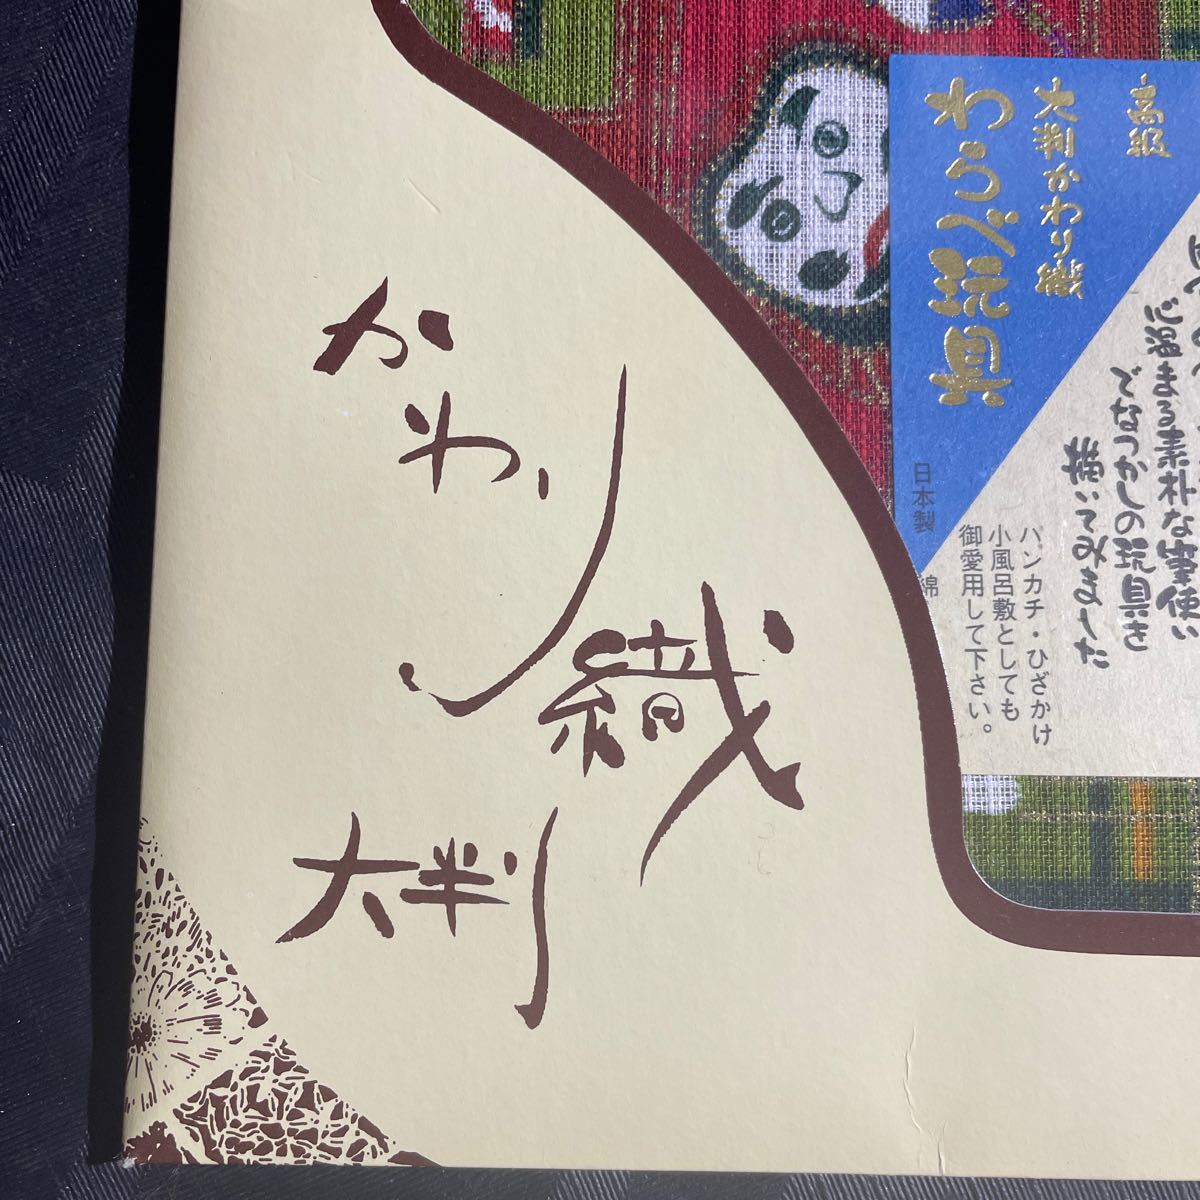 かわり織
大判
高級
大判かわり織
わらべ玩具
心温まる素朴な筆使い
でなつかしの玩具を
描いてみました
日本製
綿
ハンカチ・ひざかけ
小風呂敷としても
御愛用して下さい。